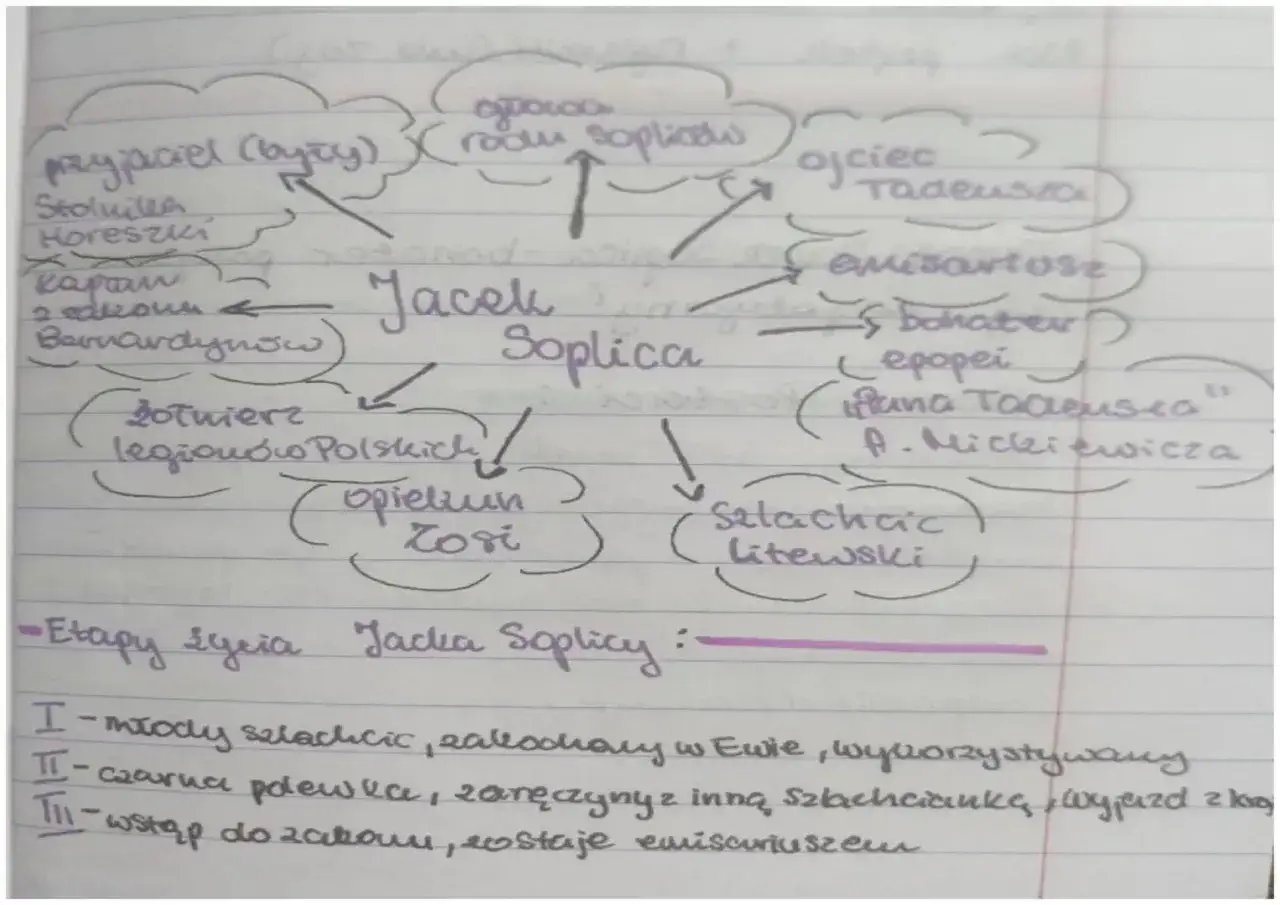 przyjaciel (były)
Stolnika
Horeszki
głowa
rodu Sopliców
ojciec
Tadeusza
emisariusz
bohater
epopei
"Pana Tadeusza"
A. Mickiewicza
Jacek
Soplica
kapłan
z zakonu
Bernardynów
żołnierz
legionów Polskich
opiekun
Zosi
szlachcic
litewski
- Etapy życia Jacka Soplicy :
I - młody szlachcic, zakochany w Ewie, wykorzystywany
II - czarna polewka, zaręczyny z inną szlachcianką, wyjazd z kraj
III - wstąp do zakonu, zostaje emisariuszem